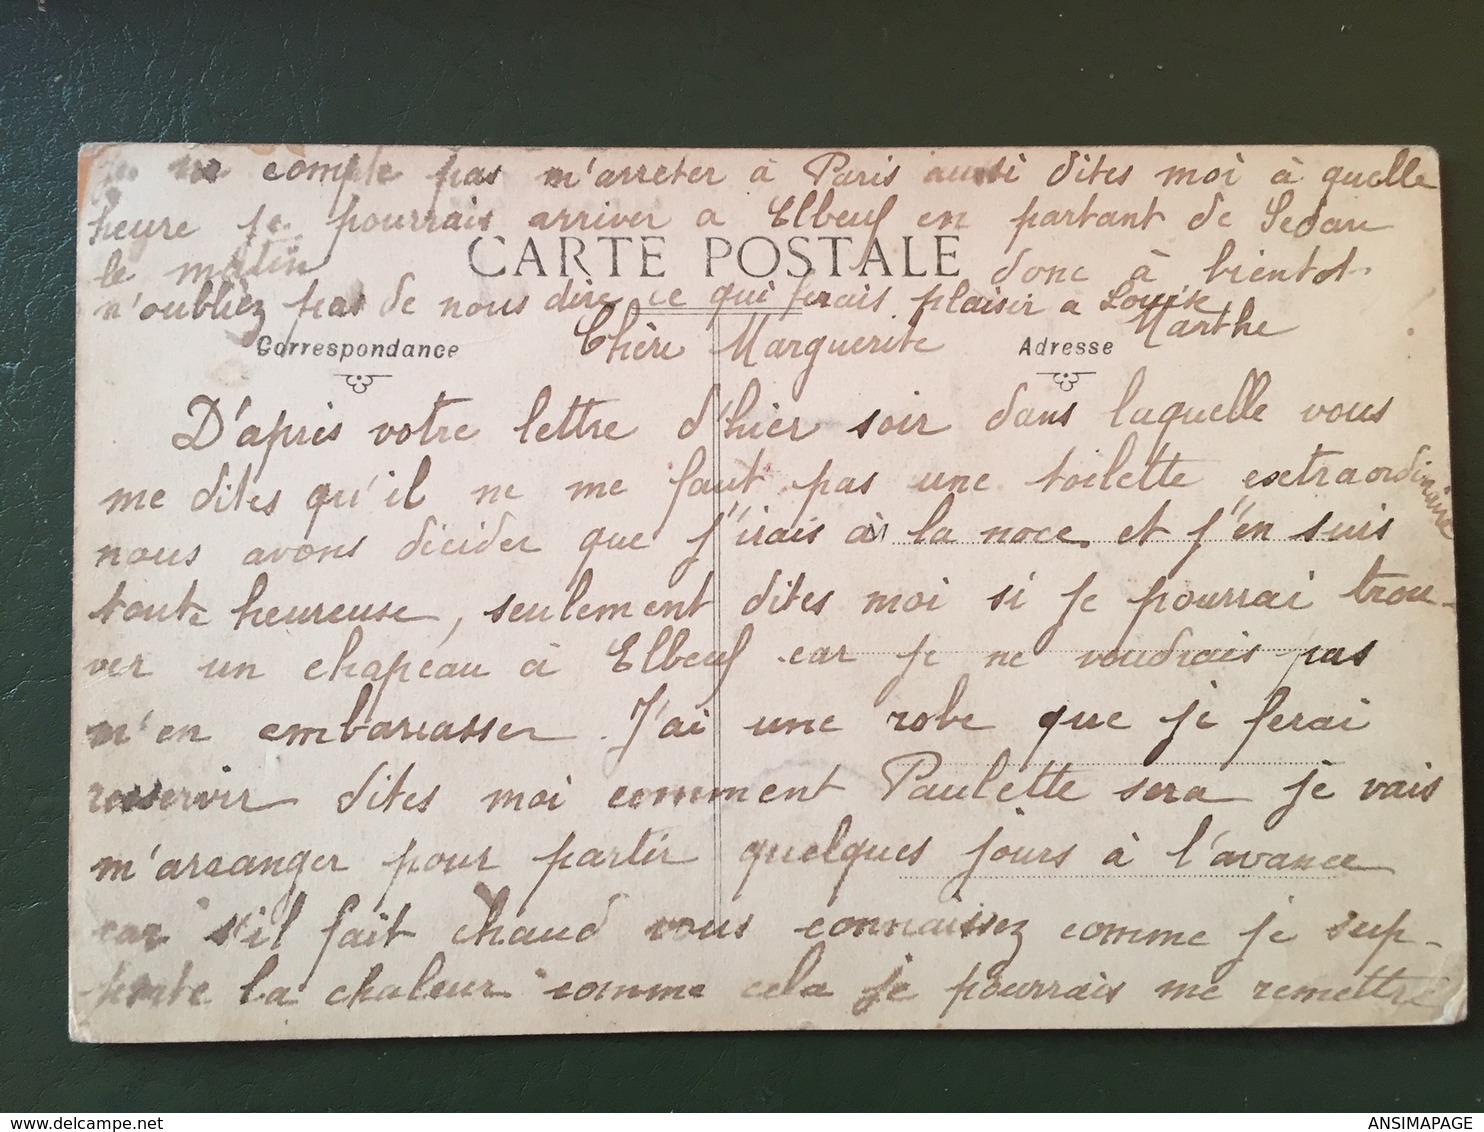 ne compte pas m'arreter à Paris aussi dites moi à quelle
heure je pourrais arriver a Elbeuf en partant de Sedan
le matin donc à bientot
CARTE POSTALE
n'oubliez pas de nous dire ce qui ferais plaisir a Louise
Marthe
Correspondance
Adresse
Chère Marguerite
D'après votre lettre d'hier soir dans laquelle vous
me dites qu'il ne me faut pas une toilette exetraordinaire
nous avons décider que j'irais à la noce et j'en suis
toute heureuse, seulement dites moi si je pourrai trou-
ver un chapeau à Elbeuf car je ne voudrais pas
m'en embarrasser. J'ai une robe que je ferai
resservir dites moi comment Paulette sera je vais
m'arranger pour partir quelques jours à l'avance
car s'il fait chaud vous connaissez comme je sup-
porte la chaleur comme cela je pourrais me remettre
ANSIMAPAGE